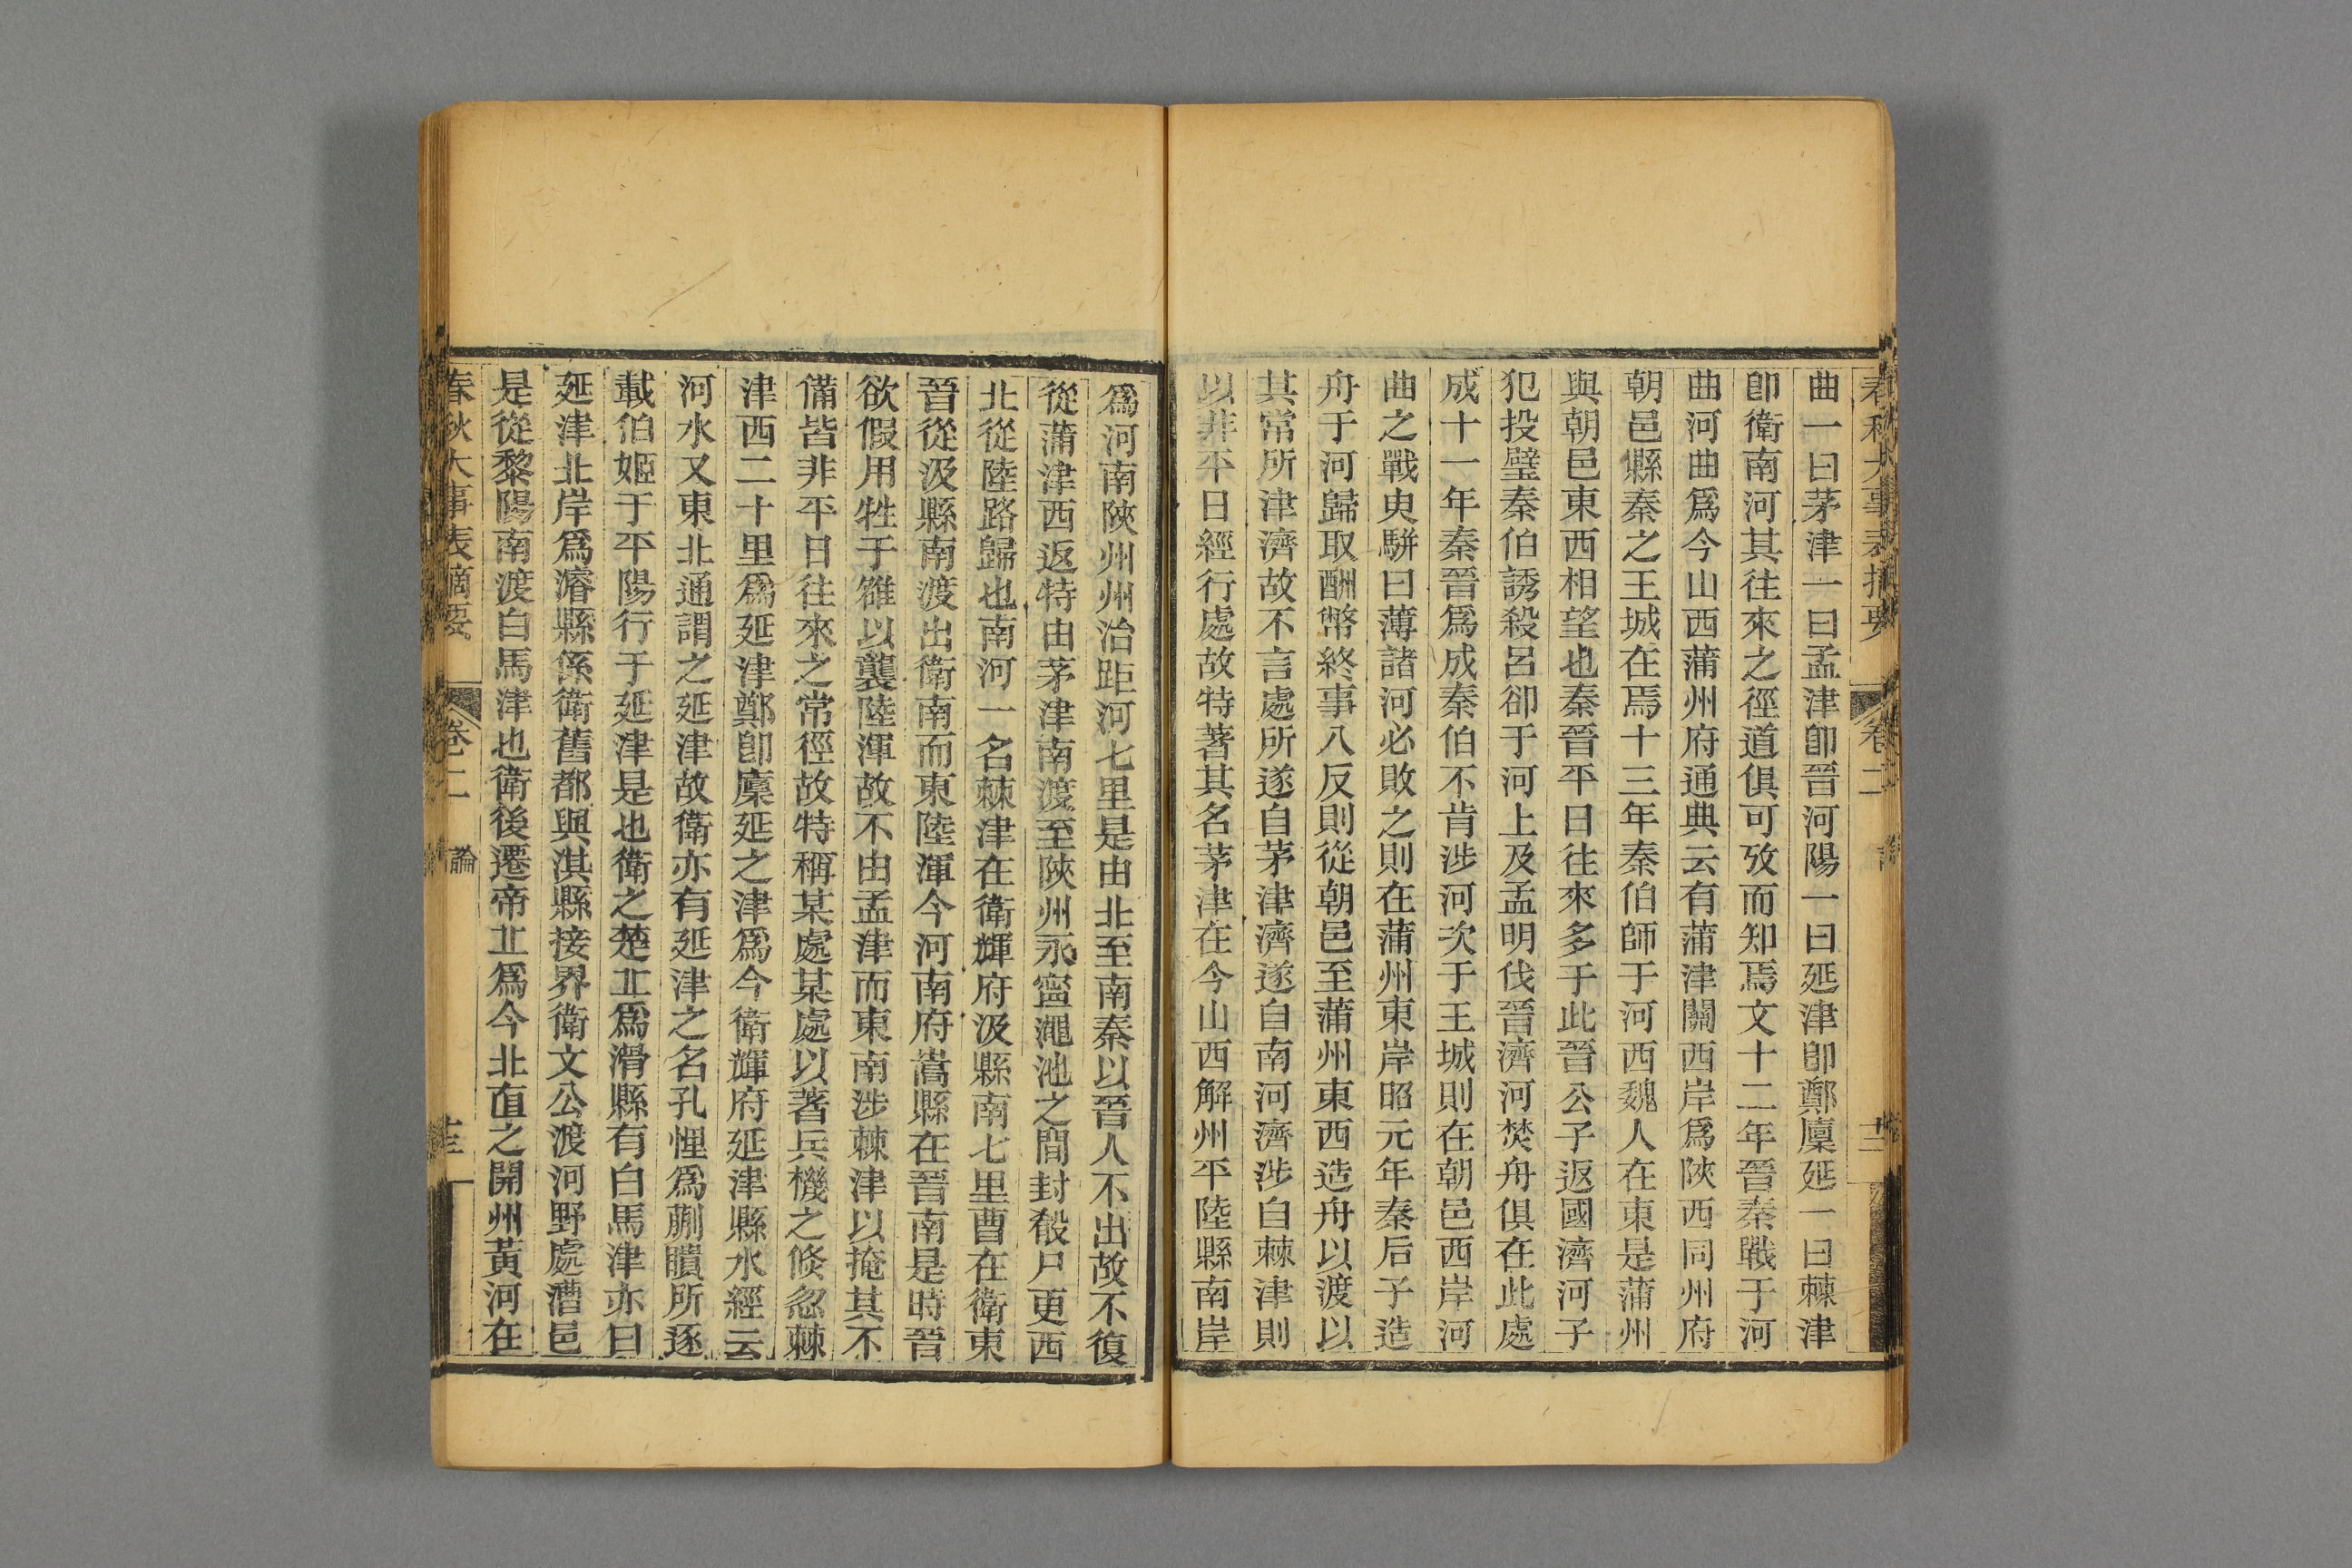 春秋大事表摘要 卷二 論
曲一曰茅津一曰孟津卽晉河陽一曰延津卽鄭廩延一曰棘津
卽衛南河其往來之徑道俱可攷而知焉文十二年晉秦戰于河
曲河曲爲今山西蒲州府通典云有蒲津關西岸爲陜西同州府
朝邑縣秦之王城在焉十三年秦伯師于河西魏人在東是蒲州
與朝邑東西相望也秦晉平日往來多于此晉公子返國濟河子
犯投璧秦伯誘殺呂卻于河上及孟明伐晉濟河焚舟俱在此處
成十一年秦晉爲成秦伯不肯涉河次于王城則在朝邑西岸河
曲之戰臾駢曰薄諸河必敗之則在蒲州東岸昭元年秦后子造
舟于河歸取酬幣終事八反則從朝邑至蒲州東西造舟以渡以
其常所津濟故不言處所遂自茅津濟遂自南河濟涉自棘津則
以非平日經行處故特著其名茅津在今山西解州平陸縣南岸
爲河南陜州州治距河七里是由北至南秦以晉人不出故不復
從蒲津西返特由茅津南渡至陜州永寧澠池之間封殽尸更西
北從陸路歸也南河一名棘津在衛輝府汲縣南七里曹在衛東
晉從汲縣南渡出衛南而東陸渾今河南府嵩縣在晉南是時晉
欲假用牲于雒以襲陸渾故不由孟津而東南涉棘津以掩其不
備皆非平日往來之常徑故特稱某處某處以著兵機之倐忽棘
津西二十里爲延津鄭卽廩延之津爲今衛輝府延津縣水經云
河水又東北通謂之延津故衛亦有延津之名孔悝爲蒯聵所逐
載伯姬于平陽行于延津是也衛之楚丠爲滑縣有白馬津亦曰
延津北岸爲濬縣係衛舊都與淇縣接界衛文公渡河野處漕邑
是從黎陽南渡白馬津也衛後遷帝丠爲今北直之開州黃河在
春秋大事表摘要 卷二 論